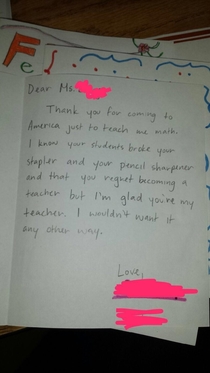 F
e
Dear Ms.
Thank you for coming to
America just to teach me math.
I know your students broke your
stapler and your pencil sharpener
and that you regret becoming a
teacher but I'm glad you're my
teacher. I wouldn't want it
any other way.
Love,